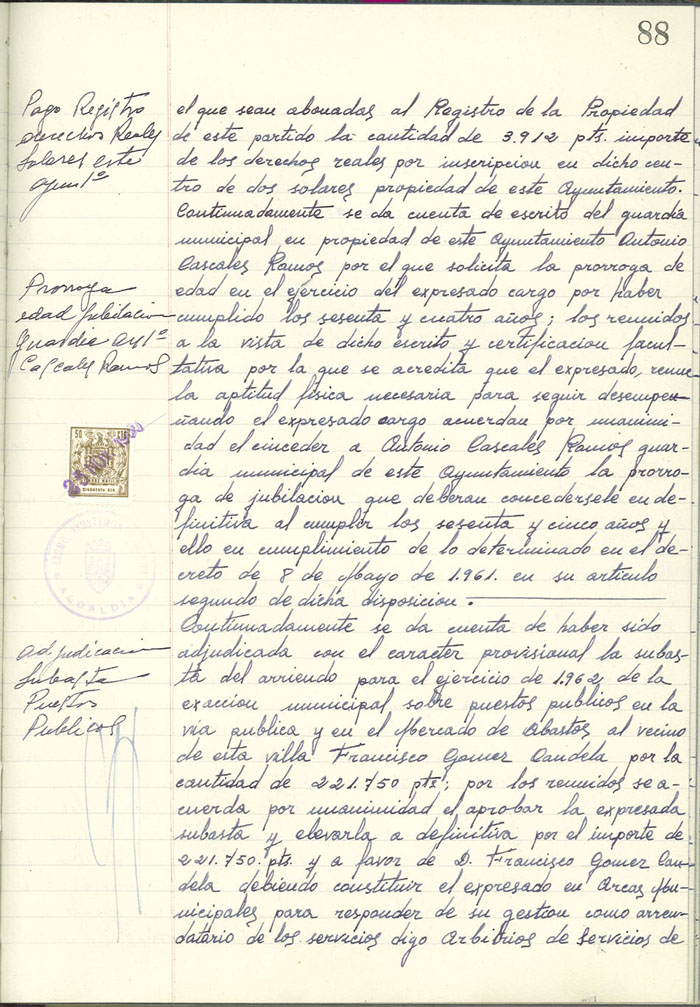 88
Pago Registro
derechos Reales
Solares este
Aymtº
el que sean abonadas al Registro de la Propiedad
de este partido la cantidad de 3.912 pts. importe
de los derechos reales por inscripcion en dicho cen-
tro de dos solares propiedad de este Ayuntamiento.
Continuadamente se da cuenta de escrito del guardia
municipal en propiedad de este Ayuntamiento Antonio
Cascales Ramos por el que solicita la prorroga de
Prorroga
edad jubilacion
Guardia Aytº
Cascales Ramos
edad en el ejercicio del expresado cargo por haber
cumplido los sesenta y cuatro años; los reunidos
a la vista de dicho escrito y certificacion facul-
tativa por la que se acredita que el expresado, reune
la aptitud física necesaria para seguir desempe-
ñando el expresado cargo acuerdan por unanimi-
dad el cinceder a Antonio Cascales Ramos guar-
dia municipal de este Ayuntamiento la prorro-
ga de jubilacion que deberan concedersele en de-
finitiva al cumplir los sesenta y cinco años y
ello en cumplimiento de lo determinado en el de-
creto de 8 de Mayo de 1.961. en su articulo
segundo de dicha disposicion.
50
ALCALDIA
Adjudicacion
Subasta
Puestos
Publicos
Continuadamente se da cuenta de haber sido
adjudicada con el caracter provisional la subas-
ta del arriendo para el ejercicio de 1.962 de la
exaccion municipal sobre puestos publicos en la
via publica y en el Mercado de Abastos al vecino
de esta villa Francisco Gomez Candela por la
cantidad de 221.750 pts; por los reunidos se a-
cuerda por unanimidad el aprobar la expresada
subasta y elevarla a definitiva por el importe de
221.750. pts. y a favor de D. Francisco Gomez Can-
dela debiendo constituir el expresado en Arcas Mu-
nicipales para responder de su gestion como arren-
datario de los servicios digo Arbitrios de Servicios de